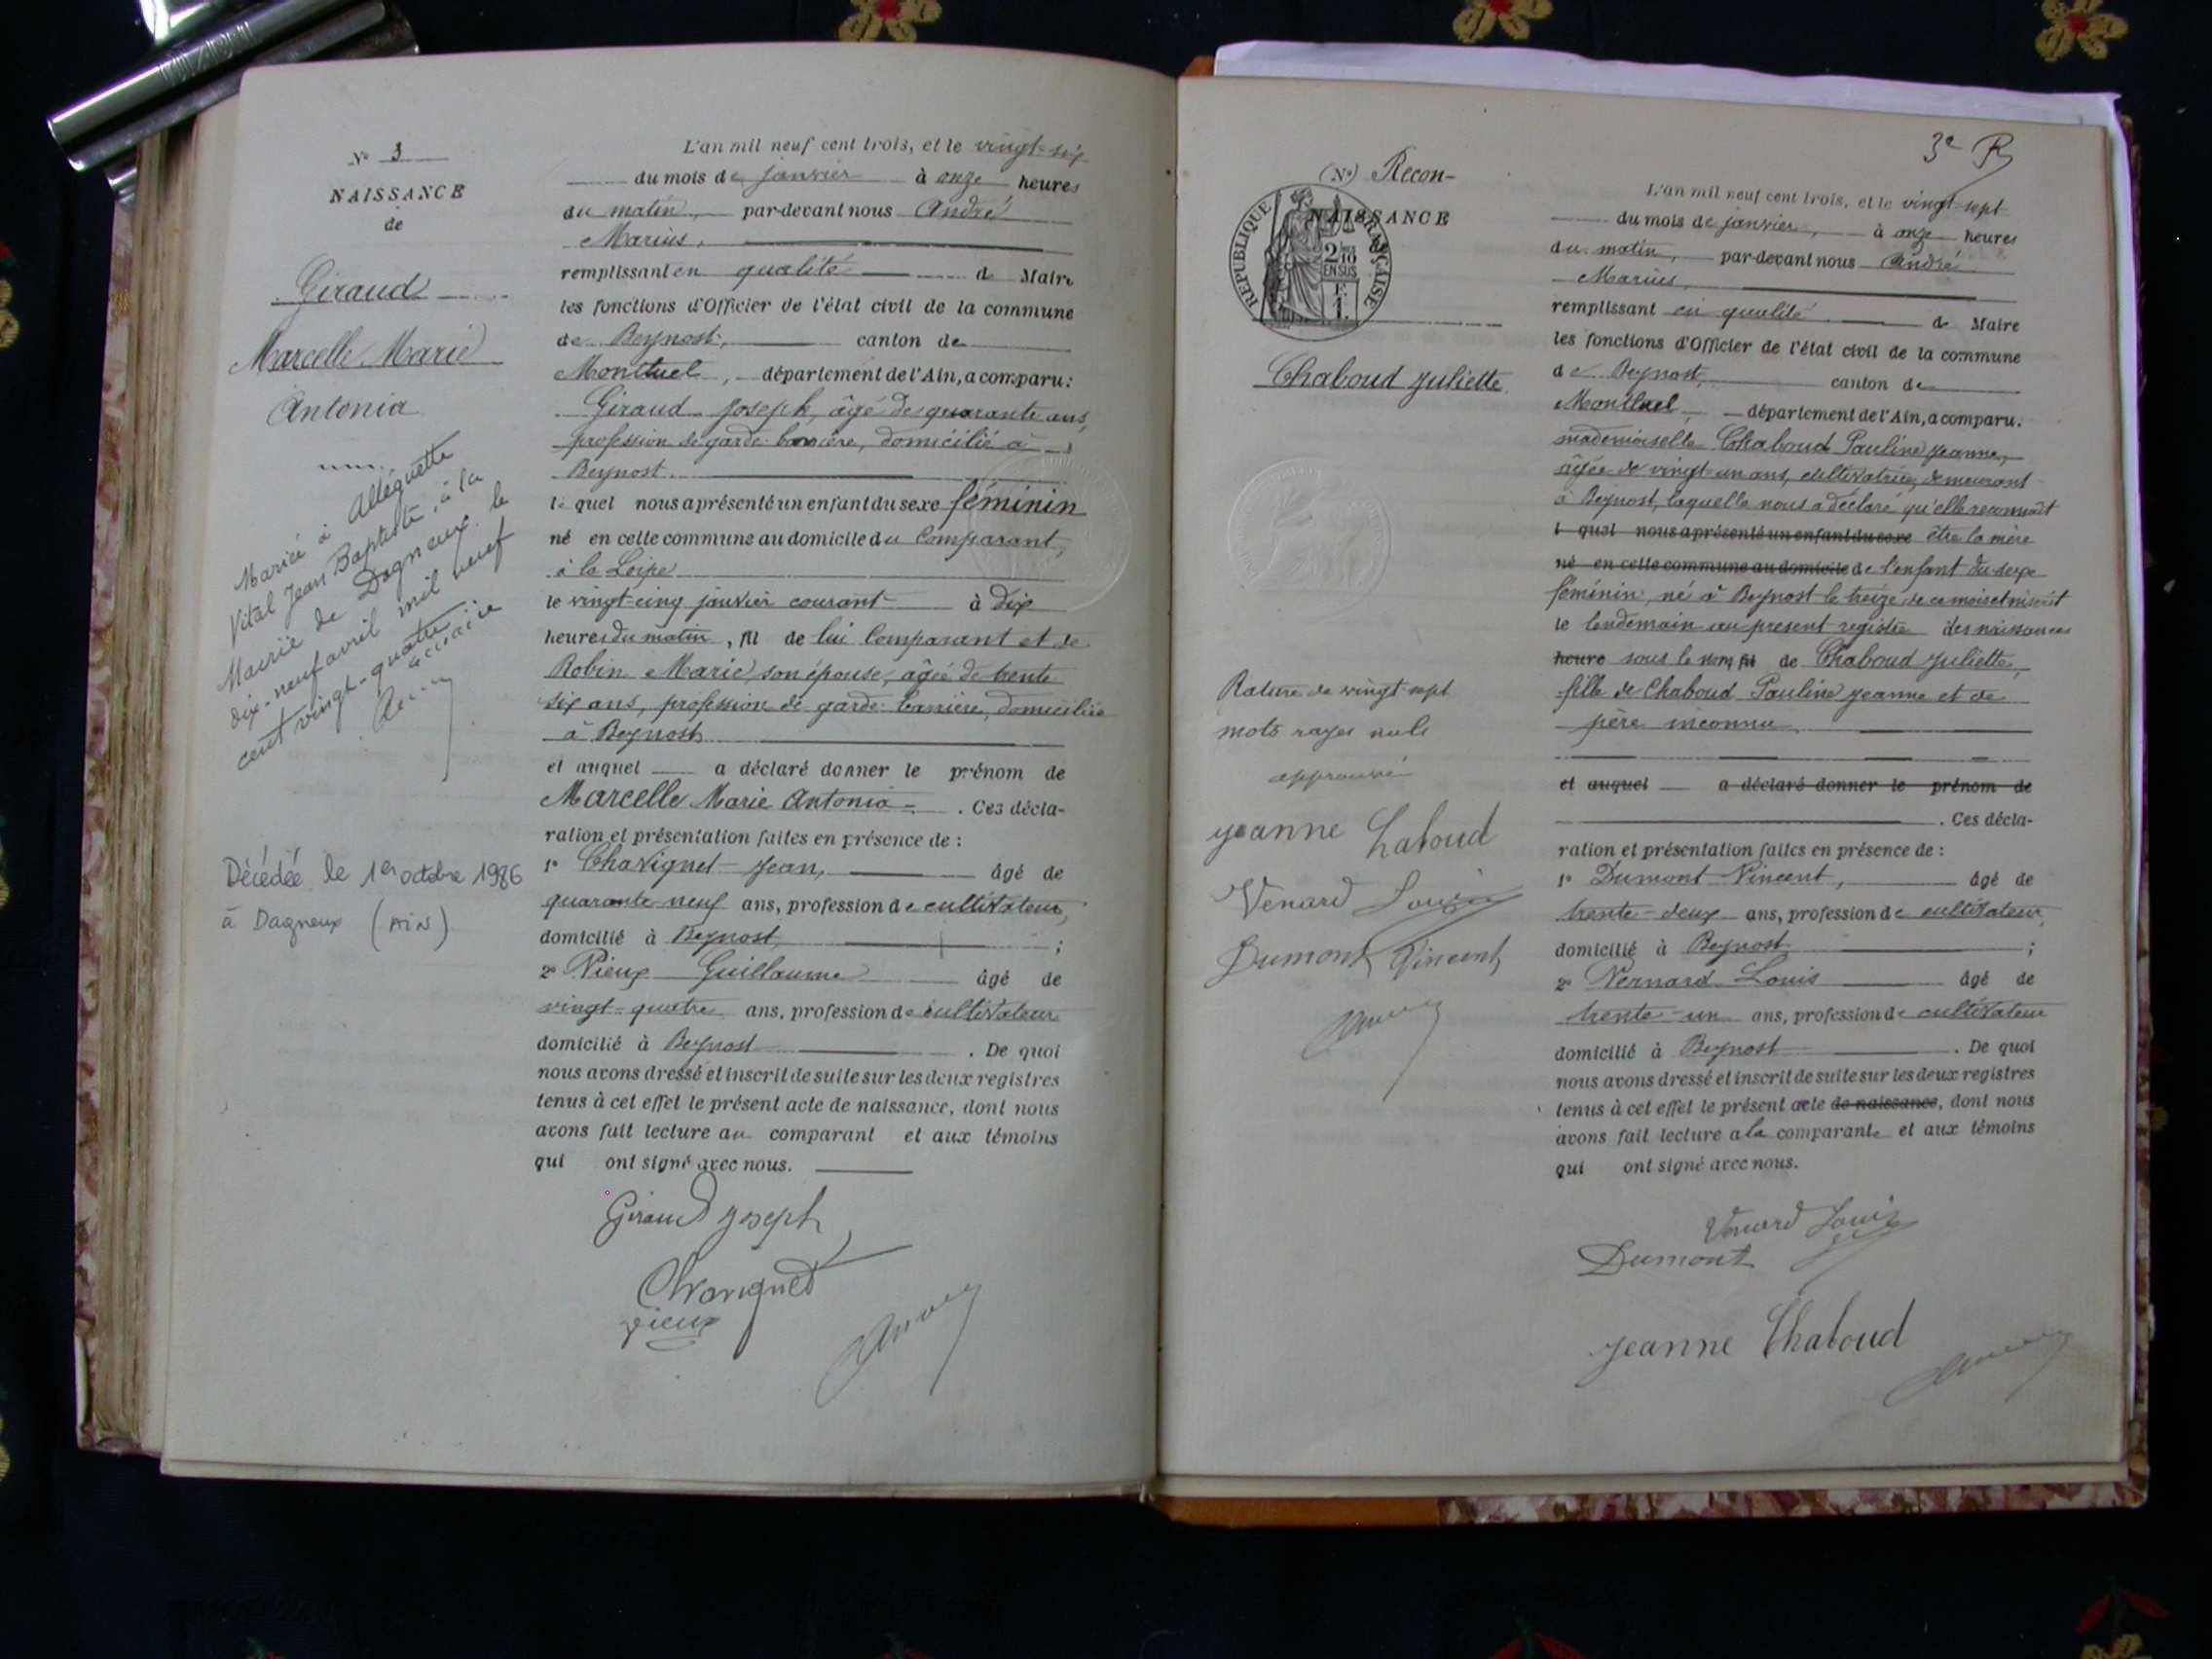 N° 3
NAISSANCE
de
Giraud
Marcelle Marie
Antonia
Mariée à Alléguette
Vital Jean Baptiste, à la
Mairie de Dagneux le
dix-neuf avril mil neuf
cent vingt-quatre
Décédée le 1er octobre 1986
à Dagneux (AIN)
L'an mil neuf cent trois, et le vingt-six
du mois de janvier à onze heures
du matin, par-devant nous André
Marius,
remplissant en qualité de Maire
les fonctions d'Officier de l'état civil de la commune
de Beynost, canton de
Montluel, département de l'Ain, a comparu:
Giraud Joseph, âgé de quarante ans,
profession de garde-barrière, domicilié à
Beynost.
lequel nous a présenté un enfant du sexe féminin
né en cette commune au domicile du Comparant,
à la
le vingt-cinq janvier courant à dix
heures du matin, fil de lui Comparant et de
Robin Marie, son épouse, âgée de trente
six ans, profession de garde-barrière, domiciliée
à Beynost
et auquel a déclaré donner le prénom de
Marcelle Marie Antonia. Ces décla-
ration et présentation faites en présence de :
1° Chavignet Jean, âgé de
quarante-neuf ans, profession de cultivateur,
domicilié à Beynost, ;
2° Vieux Guillaume âgé de
vingt-quatre ans, profession de cultivateur
domicilié à Beynost. De quoi
nous avons dressé et inscrit de suite sur les deux registres
tenus à cet effet le présent acte de naissance, dont nous
avons fait lecture au comparant et aux témoins
qui ont signé avec nous.
Giraud Joseph
Chavignet
Vieux
3e R
(N°) Recon-
NAISSANCE
REPUBLIQUE FRANÇAISE
2/10
EN SUS
F.
1.
Chaboud Juliette.
Rature de vingt-sept
mots rayés nuls
approuvé
Jeanne Chaboud
Venard Louis
Dumont Vincent
L'an mil neuf cent trois, et le vingt-sept
du mois de janvier, à onze heures
du matin, par-devant nous André
Marius,
remplissant en qualité de Maire
les fonctions d'Officier de l'état civil de la commune
de Beynost, canton de
Montluel, département de l'Ain, a comparu.
mademoiselle Chaboud Pauline Jeanne,
âgée de vingt-un ans, cultivatrice, demeurant
à Beynost, laquelle nous a déclaré qu'elle reconnaît
l quel nous a présenté un enfant du sexe être la mère
né en cette commune au domicile de l'enfant du sexe
féminin, né à Beynost le treize de ce mois et inscrit
le lendemain au present registre des naissances
heure sous le nom, fil de Chaboud Juliette,
fille de Chaboud Pauline Jeanne et de
père inconnu
et auquel a déclaré donner le prénom de
. Ces décla-
ration et présentation faites en présence de :
1° Dumont Vincent, âgé de
trente-deux ans, profession de cultivateur,
domicilié à Beynost ;
2° Vernard Louis âgé de
trente-un ans, profession de cultivateur
domicilié à Beynost. De quoi
nous avons dressé et inscrit de suite sur les deux registres
tenus à cet effet le présent acte de naissance, dont nous
avons fait lecture a la comparante et aux témoins
qui ont signé avec nous.
Venard Louis
Dumont
Jeanne Chaboud